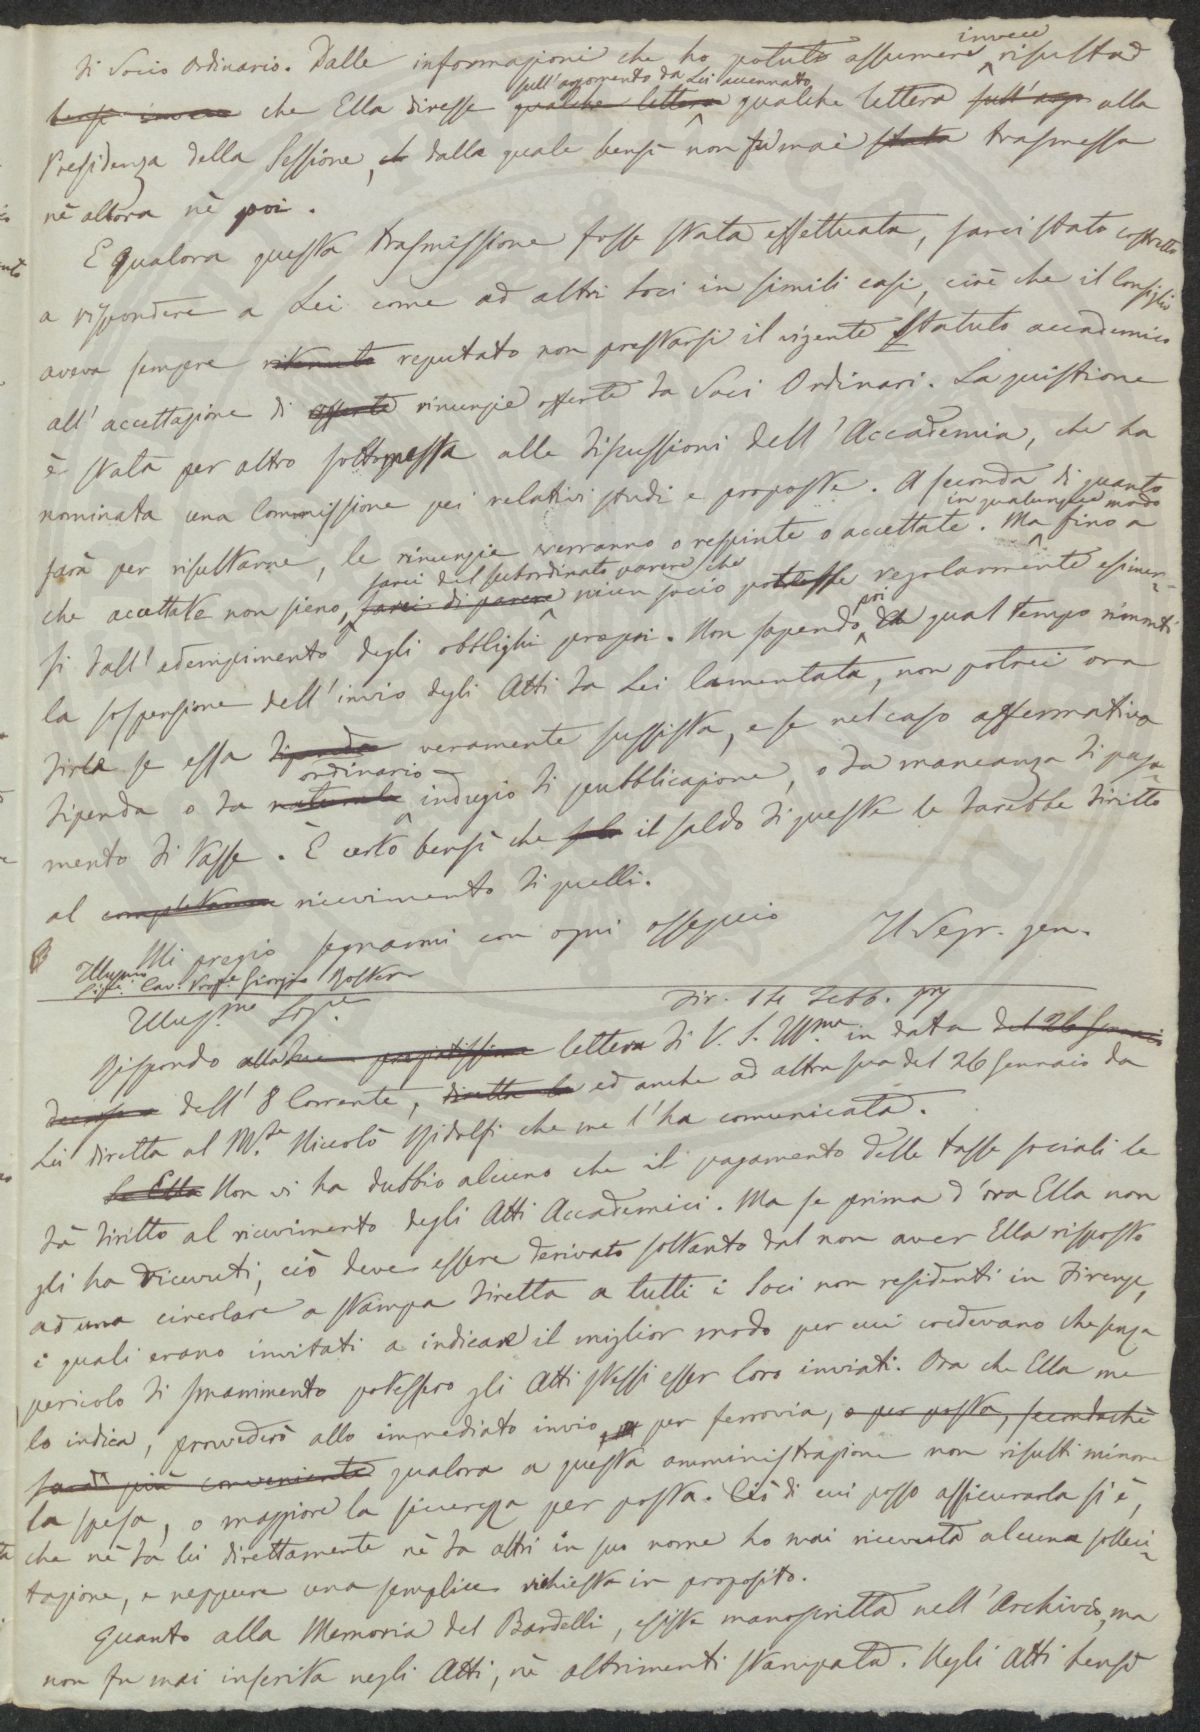 di Socio Ordinario. Dalle informazioni che ho potuto assumere invece risultad
bensì invece che Ella diresse qualche lettera sull'argomento da Lei accennato qualche lettera sull'arg alla
Presidenza della Sessione, ch dalla quale bensì non fu mai stata trasmessa
nè allora nè poi.
E qualora questa trasmissione fosse stata effettuata, sarei stato costretto
a rispondere a Lei come ad altri Soci in simili casi, cioè che il Consiglio
aveva sempre ritenuto reputato non prestarsi il vigente Statuto accademico
all'accettazione di offerte rinunzie offerte da Soci Ordinari. La quistione
è stata per altro sottomessa alle discussioni dell'Accademia, che ha
nominata una Commissione pei relativi studi e proposte. A seconda di quanto
sarà per risultarne, le rinunzie verranno o respinte o accettate in qualunque modo. Ma fino a
che accettate non sieno, sarei di parere sarei del subordinato parere che niun socio potesse regolarmente esimer-
si dall'adempimento degli obblighi propri. Non sapendo poi da qual tempo rimonti
la sospensione dell'invio degli Atti da Lei lamentata, non potrei ora
dirle se essa dipenda veramente sussista, e se nel caso affermativo
dipenda o da naturale ordinario indugio di pubblicazione, o da mancanza di paga-
mento di tasse. È certo bensì che solo il saldo di queste le darebbe diritto
al completamen ricevimento di quelli.
Mi pregio segnarmi con ogni ossequio Il Segr. gen.
Illusmo
Sigr. Cav. Profe Giorgio Roster
Fir. 14 Febb.
Illusmo Sigre
Rispondo alla sua pregiatissima lettera di V. S. Illma in data del 26 Gennaio
decorso dell'8 Corrente, diretta la ed anche ad altra sua del 26 Gennaio da
Lei diretta al Mse Niccolò Ridolfi che me l'ha comunicata.
Se Ella Non vi ha dubbio alcuno che il pagamento delle tasse sociali le
dà diritto al ricevimento degli Atti Accademici. Ma se prima d'ora Ella non
gli ha ricevuti, ciò deve essere derivato soltanto dal non aver Ella risposto
ad una circolare a stampa diretta a tutti i Soci non residenti in Firenze,
i quali erano invitati a indicare il miglior modo per cui credevano che senza
pericolo di smarrimento potessero gli Atti stessi esser loro inviati. Ora che Ella me
lo indica, provvederò allo immediato invio per ferrovia, o per posta, secondochè
sarà più conveniente qualora a questa amministrazione non risulti minore
la spesa, o maggiore la sicurezza per posta. Ciò di cui posso assicurarla si è,
che nè da lei direttamente nè da altri in suo nome ho mai ricevuta alcuna solleci-
tazione, e neppure una semplice richiesta in proposito.
Quanto alla Memoria del Bardelli, esiste manoscritta nell'Archivio, ma
non fu mai inserita negli Atti, nè altrimenti stampata. Negli Atti bensì